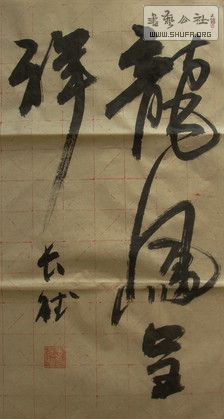 龍鳳呈
祥
书艺公社
WWW.SHUFA.ORG